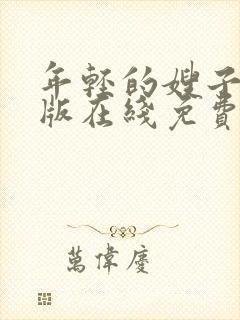 年轻的嫂子
版在线免費
萬偉慶